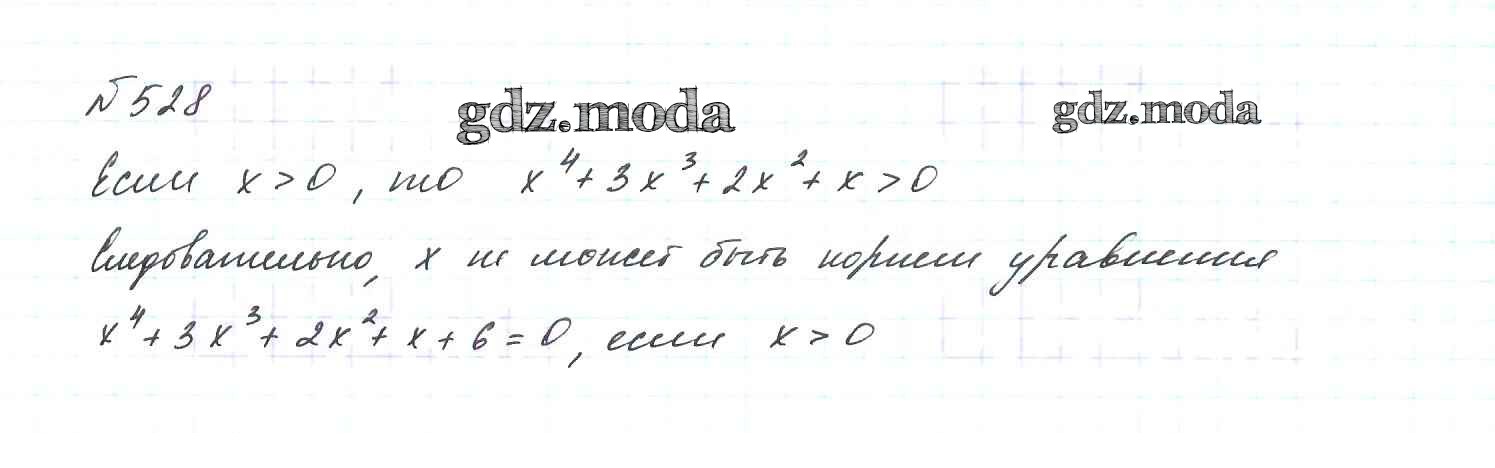 № 528
gdz.moda
gdz.moda
Если x > 0, то x⁴ + 3x³ + 2x² + x > 0
Следовательно, x не может быть корнем уравнения
x⁴ + 3x³ + 2x² + x + 6 = 0, если x > 0